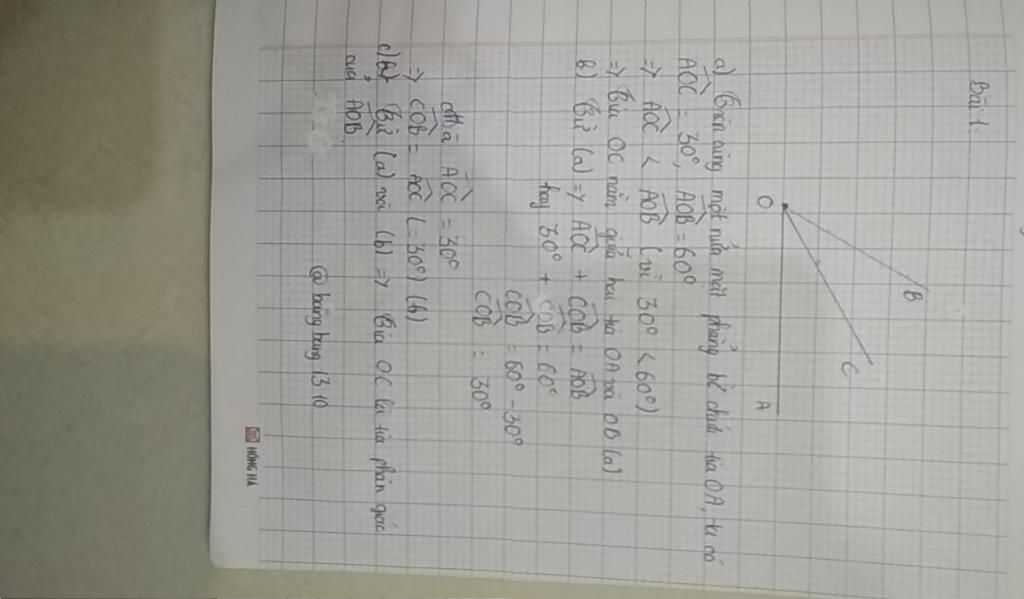 Bài 1.
O
B
C
A
a) Trên cùng một nửa mặt phẳng bờ chứa tia OA, ta có
AOC = 30°, AOB = 60°
=> AOC < AOB (vì 30° < 60°)
=> Tia OC nằm giữa hai tia OA và OB (a)
b) Từ (a) => AOC + COB = AOB
hay 30° + COB = 60°
COB = 60° - 30°
COB = 30°
Mà AOC = 30°
=> COB = AOC (= 30°) (b)
c) Từ (a) và (b) => Tia OC là tia phân giác
của AOB
@ băng bang 1310
HỒNG HÀ